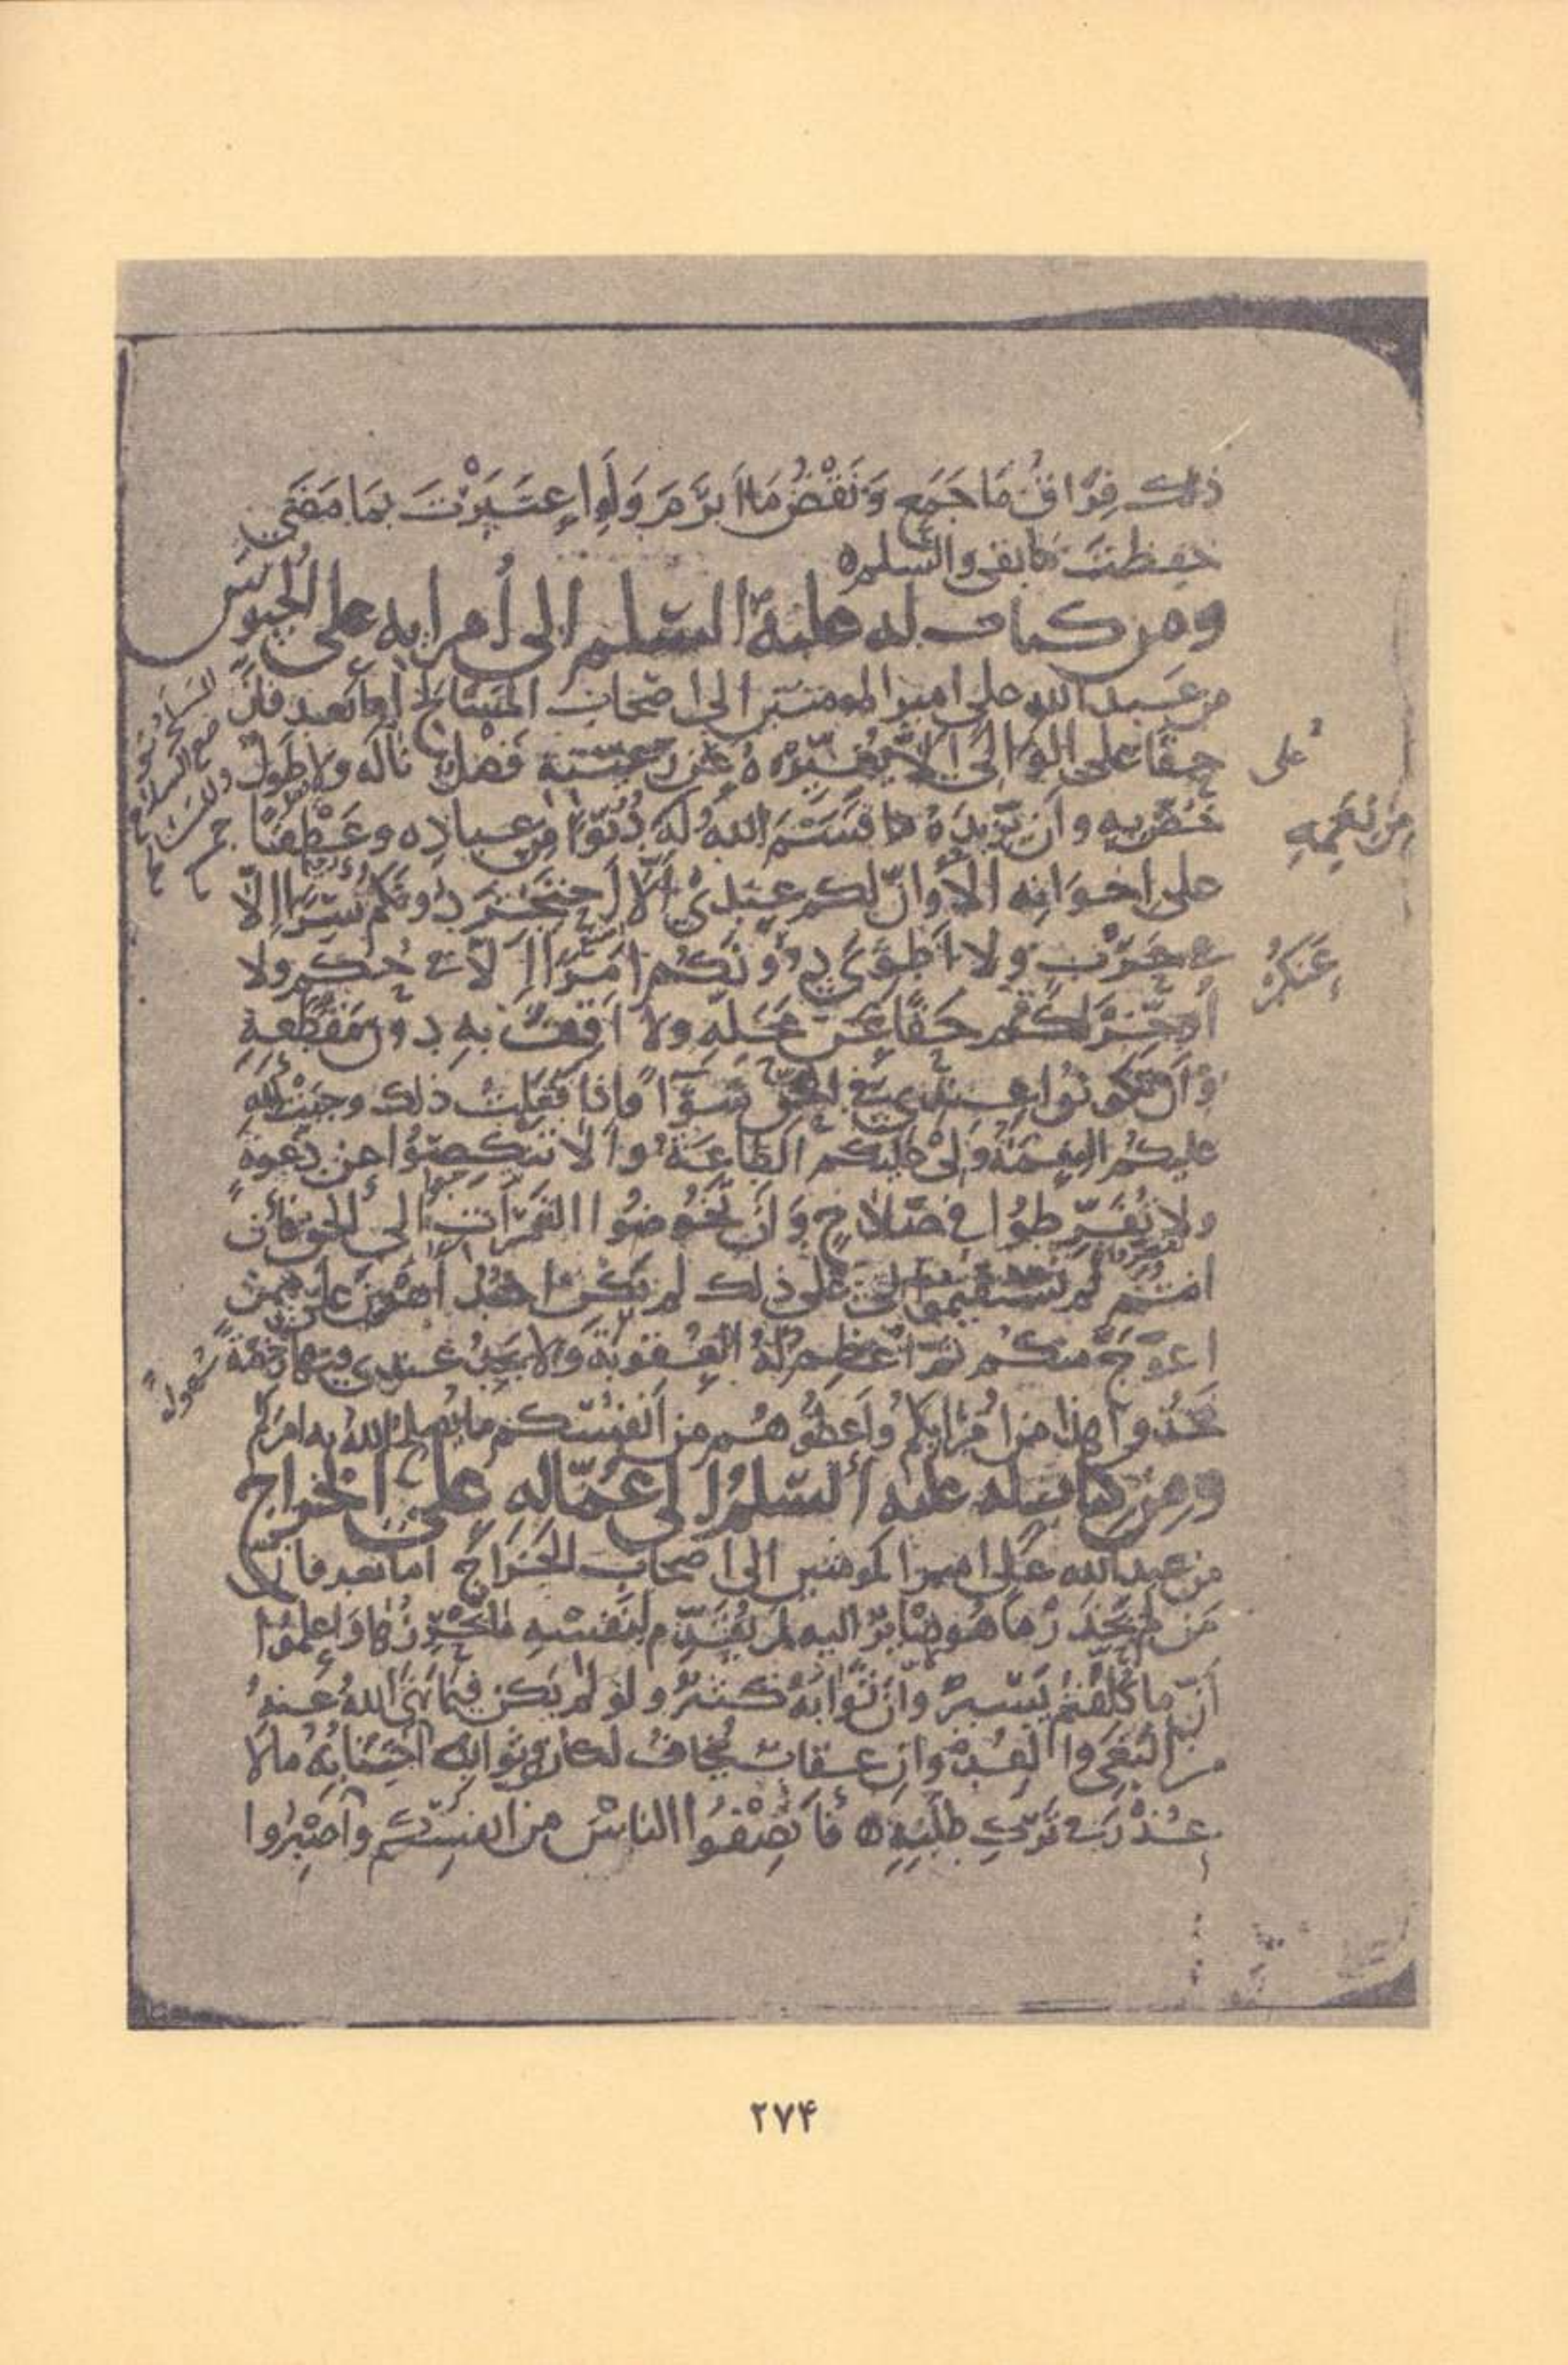 ذلك فِرَاقُ مَا جَمَع وَنَقْضُ مَا اَبْرَمَ وَلَوِ اعتَبَرْتَ بِمَا مَضَى
حفظتَ ما بقى والسّلم
ومن كتاب له عليه السّلم الى اُمرايه على الجيوش
من عبد الله على امير المومنين الى اصحاب المسَالح اما بعد فانّ
حقّا على الوَالى الاّ يُغَيّرَهُ عن رعيّته فضلٌ ناله ولا طَولٌ
خُصّ به وان يزيدَهُ ما قسَمَ اللهُ له دُنُوّا من عباده وعَطْفًا
على
مِن نِعَمِهِ
على اخوَانه الا وانّ لكم عندى الاّ احتجز دونكم سِرّا الاّ
فى حَرْبٍ ولا اَطْوِىَ دونكم امرًا الاّ فى حُكم ولا
أؤخّرَ لكم حقًّا عن محَلّهِ ولا اقفَ به دون مَقطَعِهِ
وَاَن تكونُوا عندى فى الحقّ سوَآءً فاذا فعَلتُ ذلك وجبَتْ لله
عليكم النعمَةُ وَلى عليكم الطّاعَةُ والاّ تنكصُوا عن دَعوةٍ
ولا تُفَرّطوُا فى صَلاحٍ وَاَن تخُوضُوا الغمَرَاتِ الى الحق فان
انتم لم تستقيموا لى على ذلك لم يكن احدٌ اهوَنَ علىّ ممن
اعوَجّ منكم ثمّ اُعْظِمُ لهُ العُقوبَةَ وَلا يجدُ عندى فيها رُخصَةً
فخُذوا هذا من اُمَرَايكم وَاَعطُوهُم من اَنفُسكم ما يُصلحُ اللهُ به امرَكم
وَمِن كتاب له عليه السّلمُ الى عُمّاله على الخراج
من عبد الله على امير المومنين الى اصحاب الخَرَاج اما بعد فانّ
مَن لم يحذَرْ ما هُوَ صَايِرٌ اليه لم يُقَدّم لِنَفسِهِ ما يُحْرِزُهَا وَاعلمُوا
اَنّ ما كُلّفتُم يَسيرٌ وأنّ ثَوَابَهُ كثيرٌ ولو لم يكن فيما نهَى اللهُ عنهُ
من البَغى والعُدوان عقابٌ يُخافُ لكان فى ثوابِ اجتنابِهُ ما لا
عُذْرَ فى تَركِ طلَبِهِ فَاَنْصِفُوا الناسَ من انفسكم وَاصْبِرُوا
۲۷۴